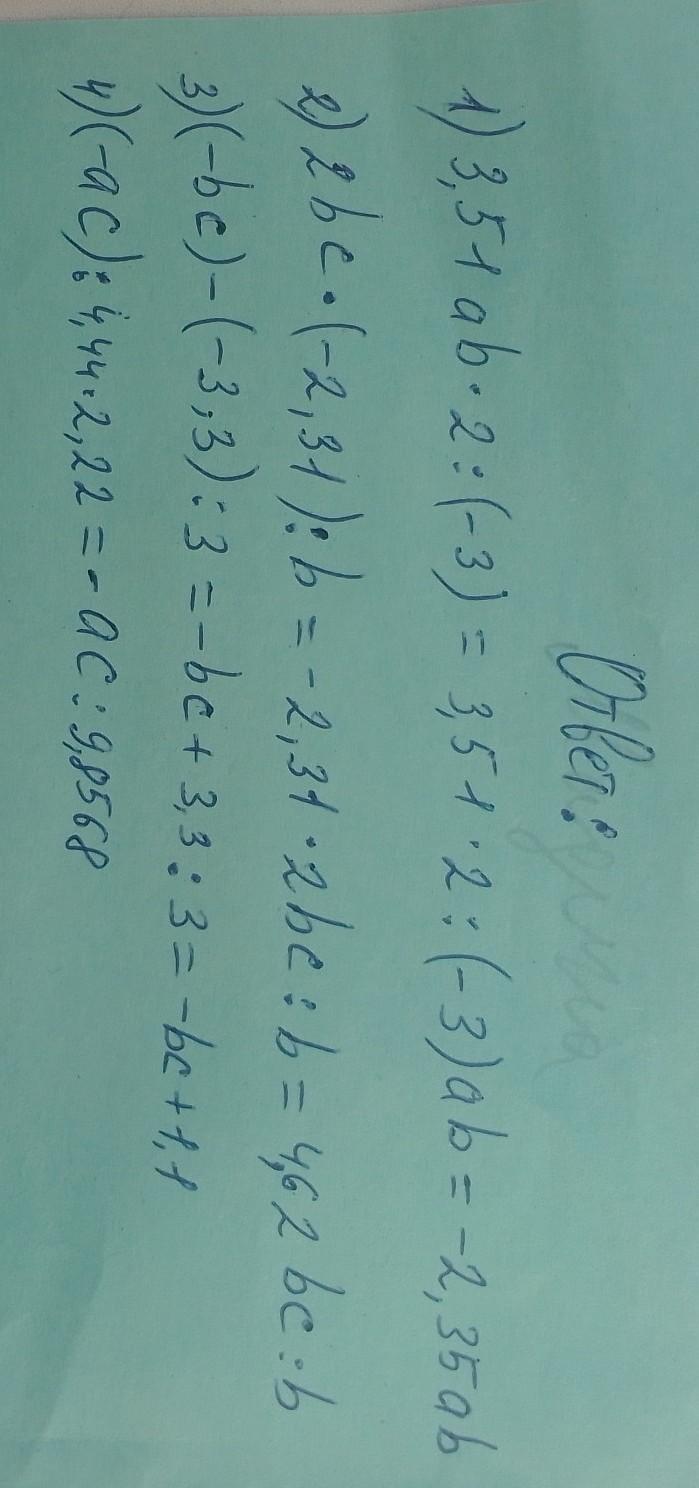 Ответ:
1) 3,51ab·2:(-3) = 3,51·2:(-3)ab = -2,35ab
2) 2bc·(-2,31):b = -2,31·2bc:b = 4,62bc:b
3) (-bc)-(-3,3):3 = -bc+3,3:3 = -bc+1,1
4) (-ac):4,44·2,22 = -ac:9,8568